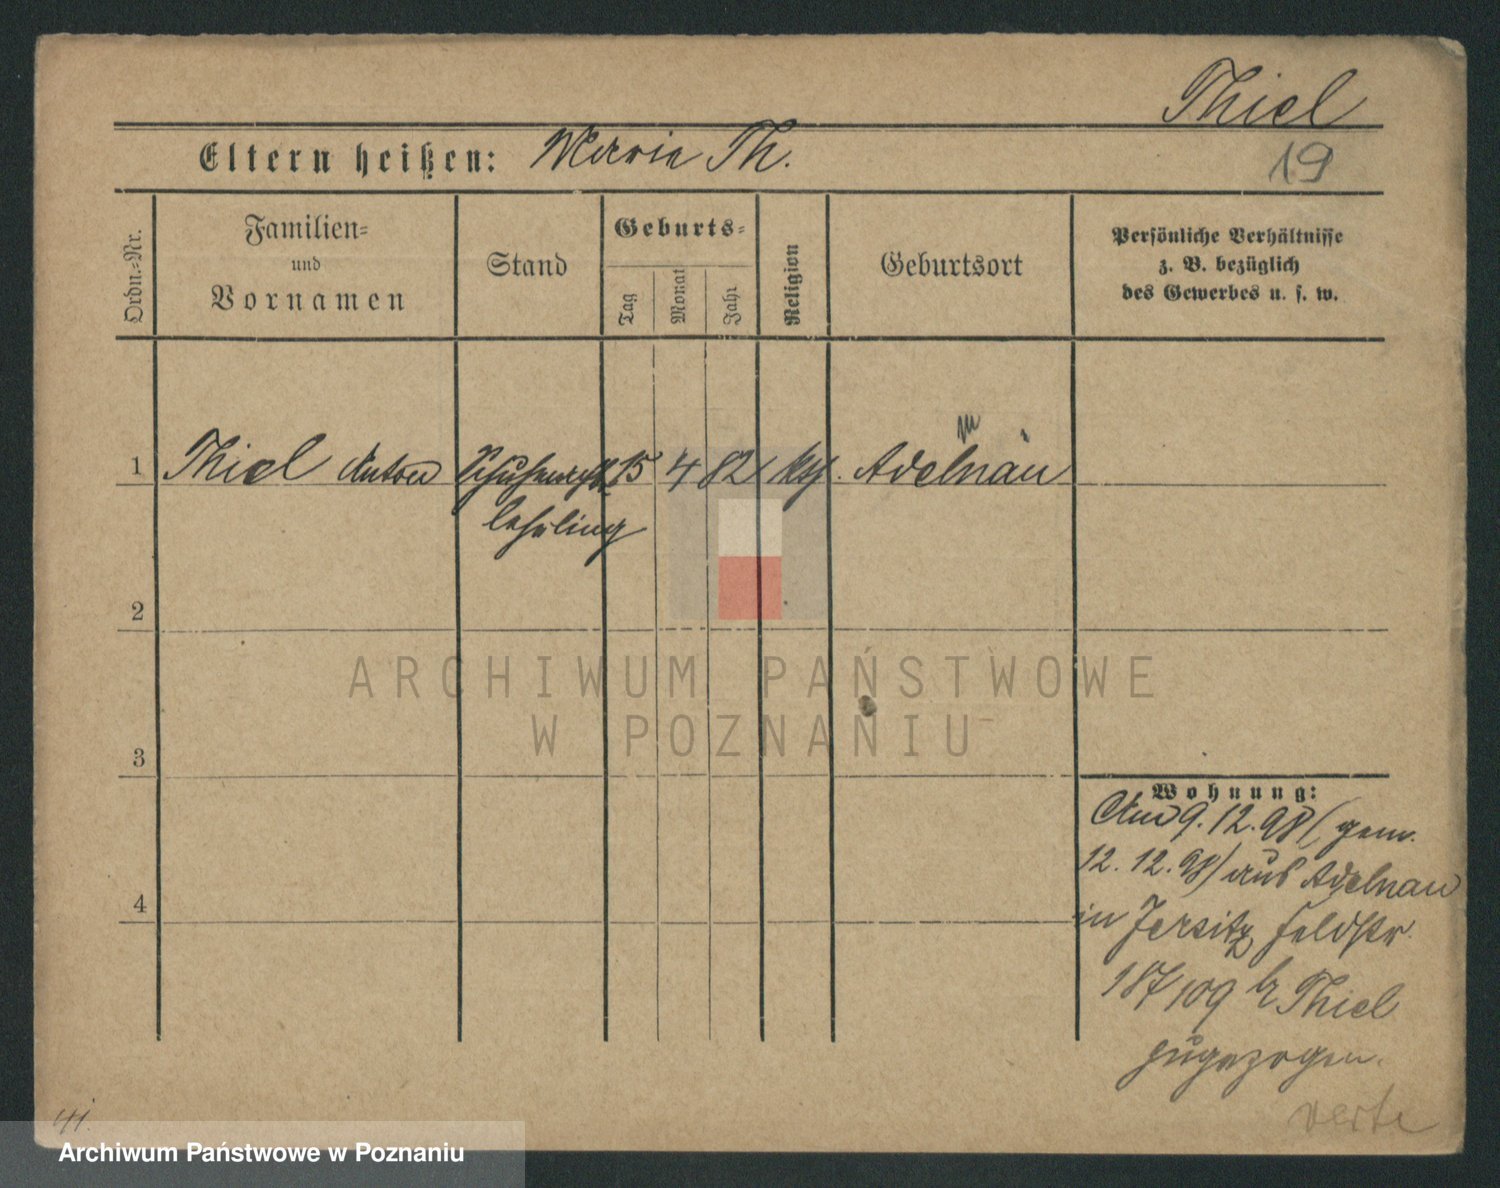 Thiel
19
Eltern heißen: Marie Th.
Ordn.-Nr.
Familien-
und
Vornamen
Stand
Geburts-
Tag
Monat
Jahr
Religion
Geburtsort
Persönliche Verhältnisse
z. B. bezüglich
des Gewerbes u. s. w.
1 Thiel Anton 15 4 82 Adelnau
lehrling
2
3
4
ARCHIWUM PAŃSTWOWE
W POZNANIU
Wohnung:
Am 9. 12. 98 (gem.
12. 12. 98) aus Adelnau
in Jersitz Feldstr.
187/109 b Thiel
zugezogen.
verte
Archiwum Państwowe w Poznaniu